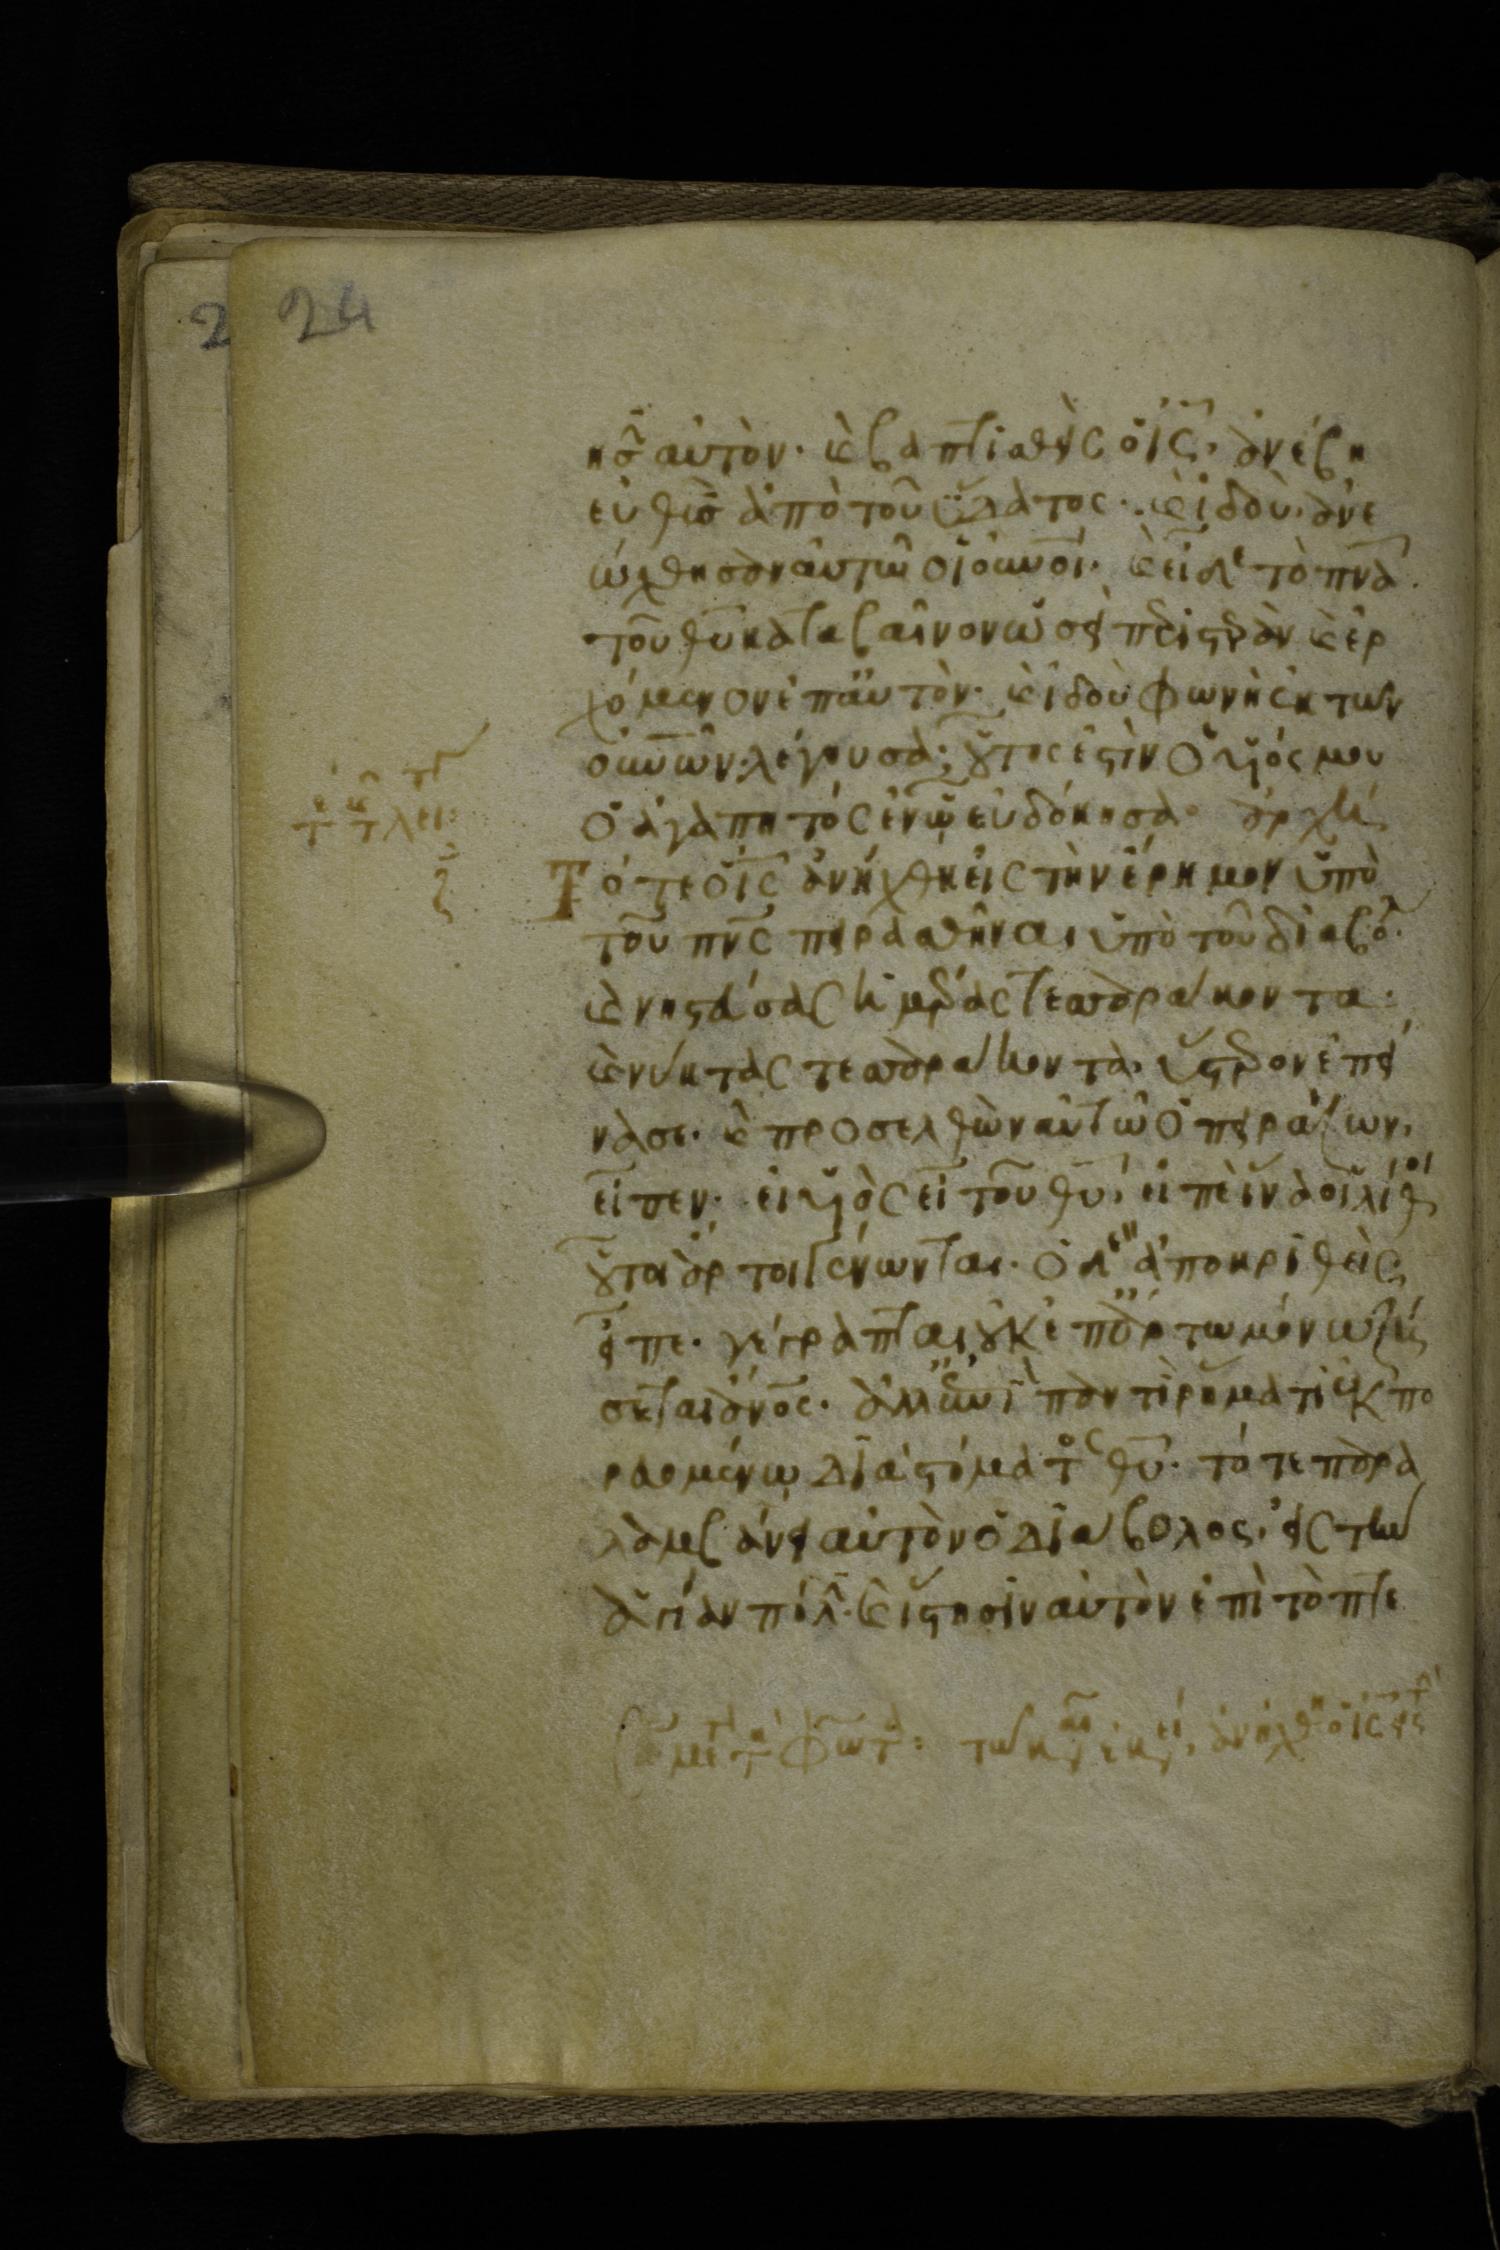 24
2
ησ αὐτὸν· καὶ βαπτισθεὶς ὁ ις, ἀνέβη
εὐθὺς ἀπὸ τοῦ ὕδατος· καὶ ἰδοὺ, ἀνε
ώχθησαν αὐτῶ οἱ οὐνοι· καὶ εἶδε τὸ πνα
τοῦ θυ καταβαῖνον ὡσεὶ περιστερὰν καὶ ἐρ
χόμενον ἐπ' αὐτὸν· καὶ ἰδοὺ φωνὴ ἐκ των
οὐνῶν λέγουσα· οὗτος ἐστὶν ὁ υἱός μου
ὁ ἀγαπητός ἐν ὧ εὐδόκησα· ἀρχὴ
Τότε ὁ ις ἀνήχθη εἰς τὴν ἔρημον ὑπὸ
τοῦ πνς πειρασθῆναι ὑπὸ τοῦ διαβό
καὶ νηστεύσας ἡμέρας τεσσαράκοντα·
καὶ νύκτας τεσσαράκοντα, ὕστερον ἐπεί
νασε· καὶ προσελθὼν αὐτῶ ὁ πειράζων,
εἶπεν· εἰ υἱὸς εἶ τοῦ θυ, εἰπὲ ἵνα οἱ λίθοι
οὗτοι ἄρτοι γένωνται· ὁ δὲ ἀποκριθεὶς
εἶπε· γέγραπται, οὐκ ἐπ' ἄρτω μόνω ζή
σεται ἀνος· ἀλλ' ἐν παντὶ ῥήματι ἐκπο
ρευομένω διὰ στόματος θυ· τότε παρα
λαμβάνει αὐτὸν ὁ διάβολος, εἰς τὴν
ἁγίαν πόλ· καὶ ἵστησιν αὐτὸν ἐπὶ τὸ πτε